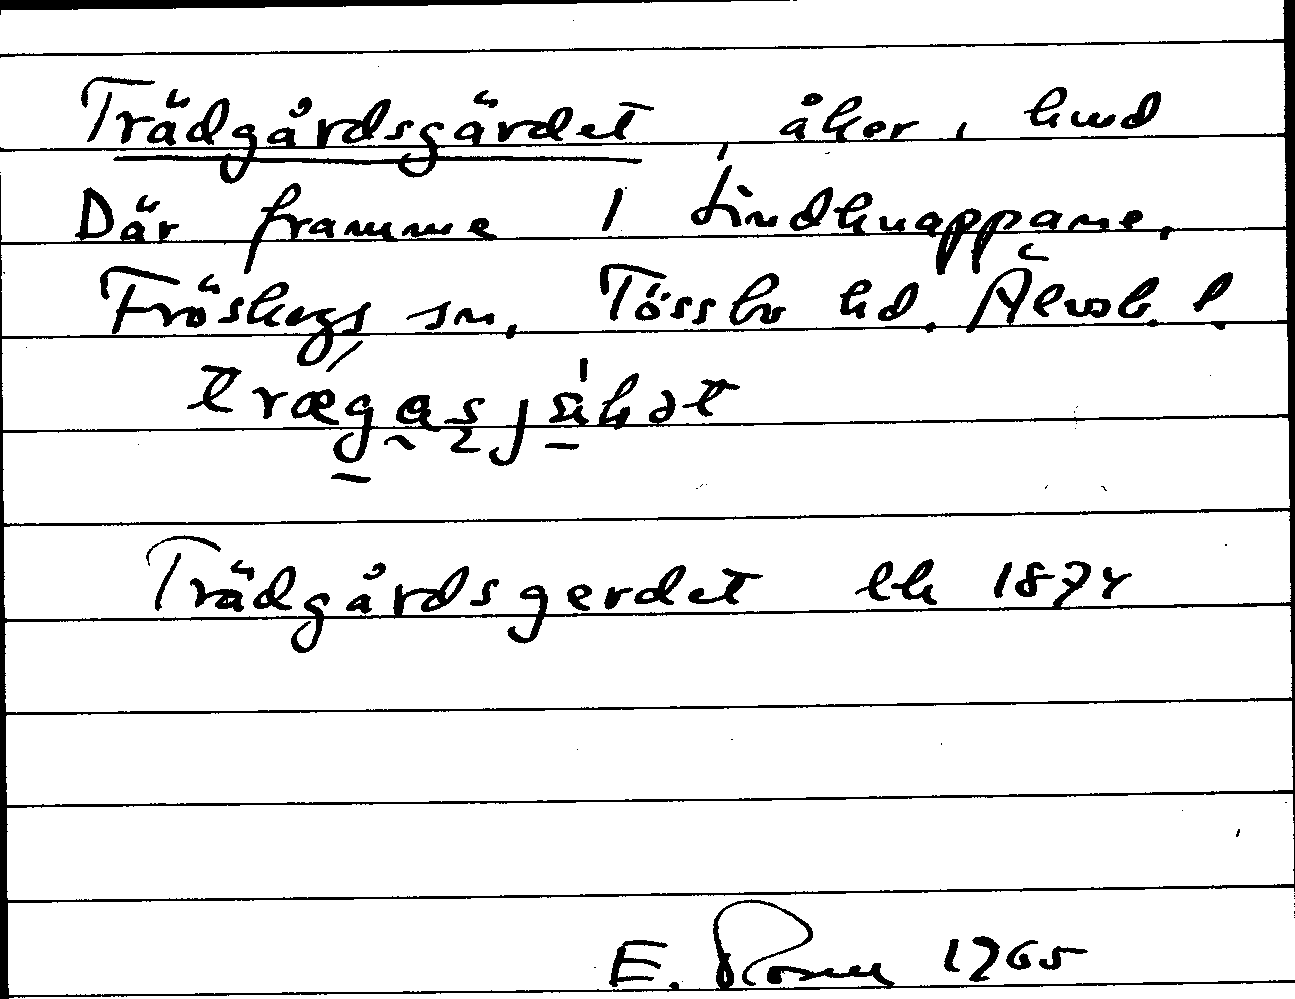 Trädgårdsgärdet, åker, hmd
Där framme i Lindknappane,
Fröskogs sn, Tössbo hd. Älvsb. l.
Trädgårdsgerdet lk 1874
E. Rosell 1965